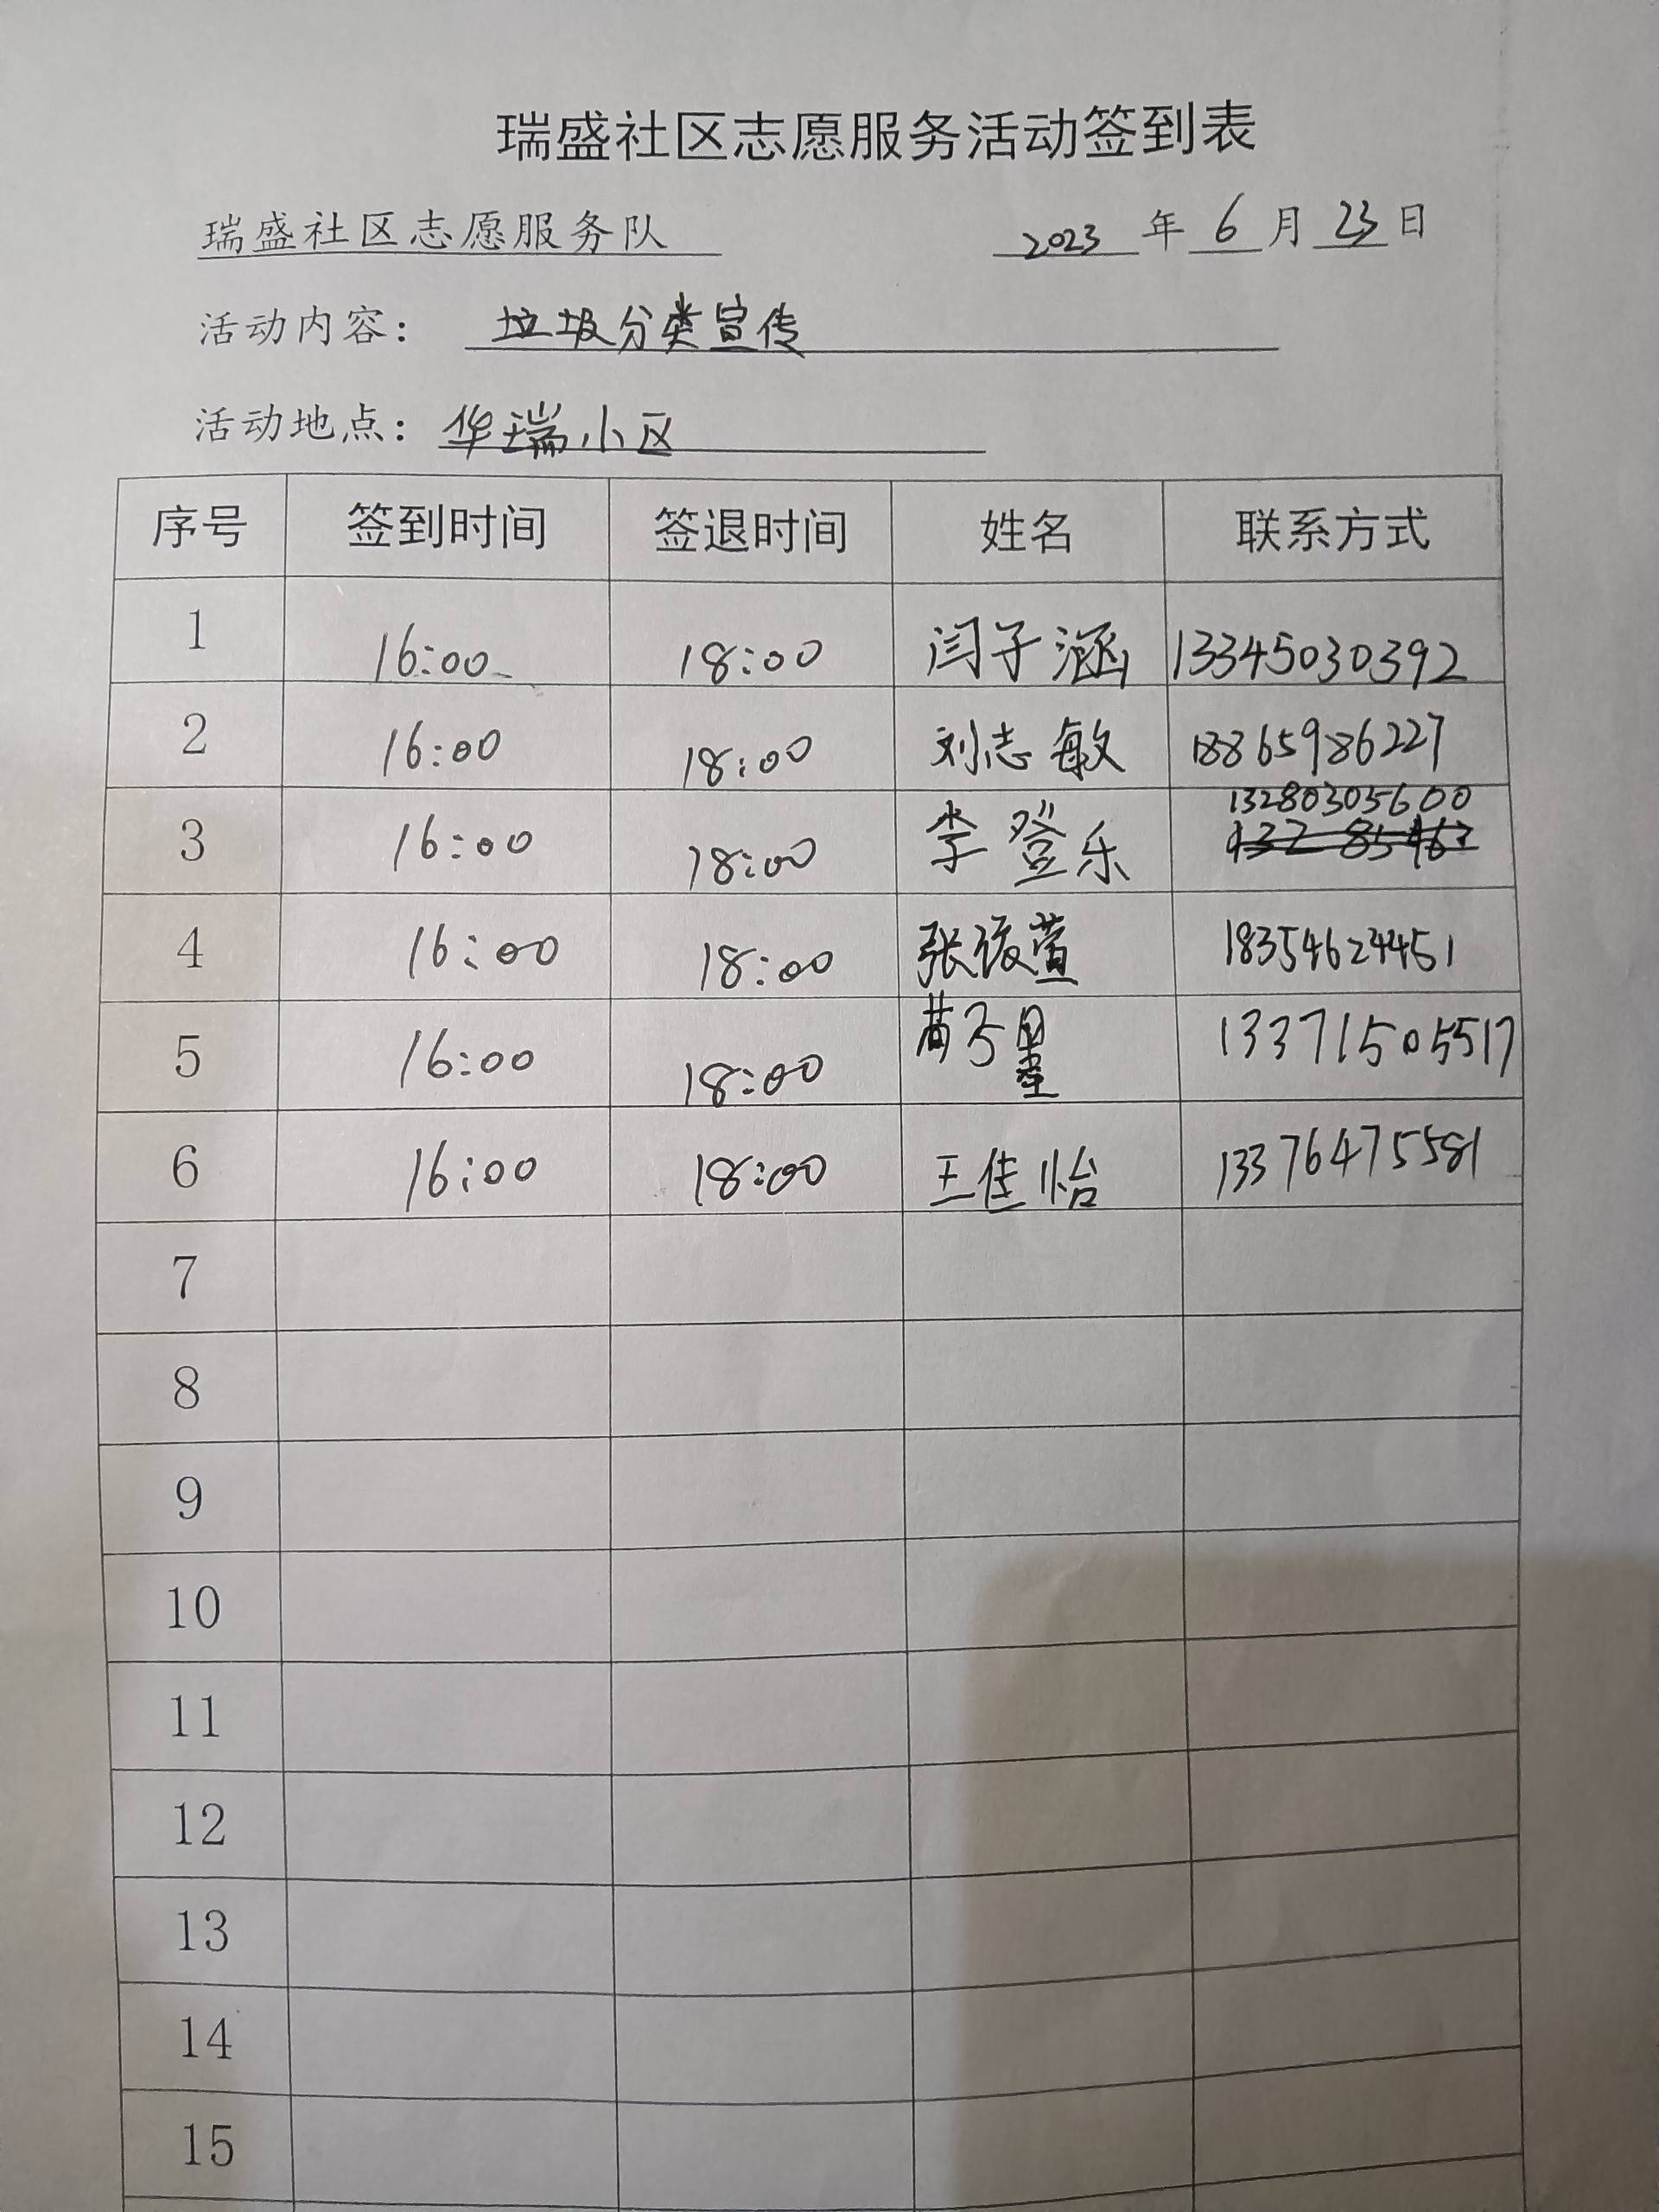 瑞盛社区志愿服务活动签到表
瑞盛社区志愿服务队 2023 年 6 月 23 日
活动内容： 垃圾分类宣传
活动地点：华瑞小区
序号 签到时间 签退时间 姓名 联系方式
1 16:00 18:00 闫子涵 13345030392
2 16:00 18:00 刘志敏 18865986227
13280305600
3 16:00 18:00 李登乐
4 16:00 18:00 张 萱 18354624451
5 16:00 18:00 13371505517
6 16:00 18:00 王佳怡 13376475581
7
8
9
10
11
12
13
14
15